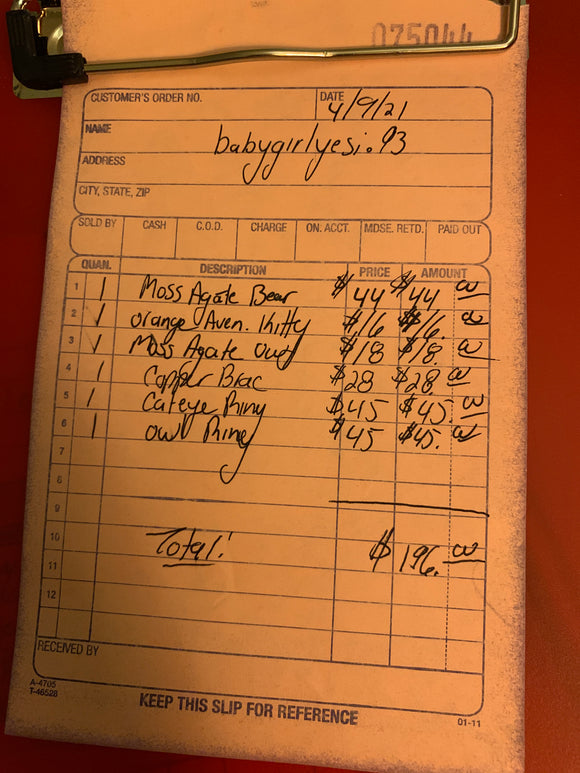 075044
CUSTOMER'S ORDER NO. DATE 4/9/21
NAME babygirlyesi.93
ADDRESS
CITY, STATE, ZIP
SOLD BY CASH C.O.D. CHARGE ON. ACCT. MDSE. RETD. PAID OUT
QUAN. DESCRIPTION PRICE AMOUNT
1 1 Moss Agate Bear $44 $44 00
2 1 Orange Aven. Kitty $16 $16 00
3 1 Moss Agate Owl $18 $18 00
4 1 Copper Brac $28 $28 00
5 1 Cateye Ring $45 $45. 00
6 1 Owl Ring $45 $45. 00
7
8
9
10 Total: $196. 00
11
12
RECEIVED BY
A-4705
T-46528
KEEP THIS SLIP FOR REFERENCE 01-11